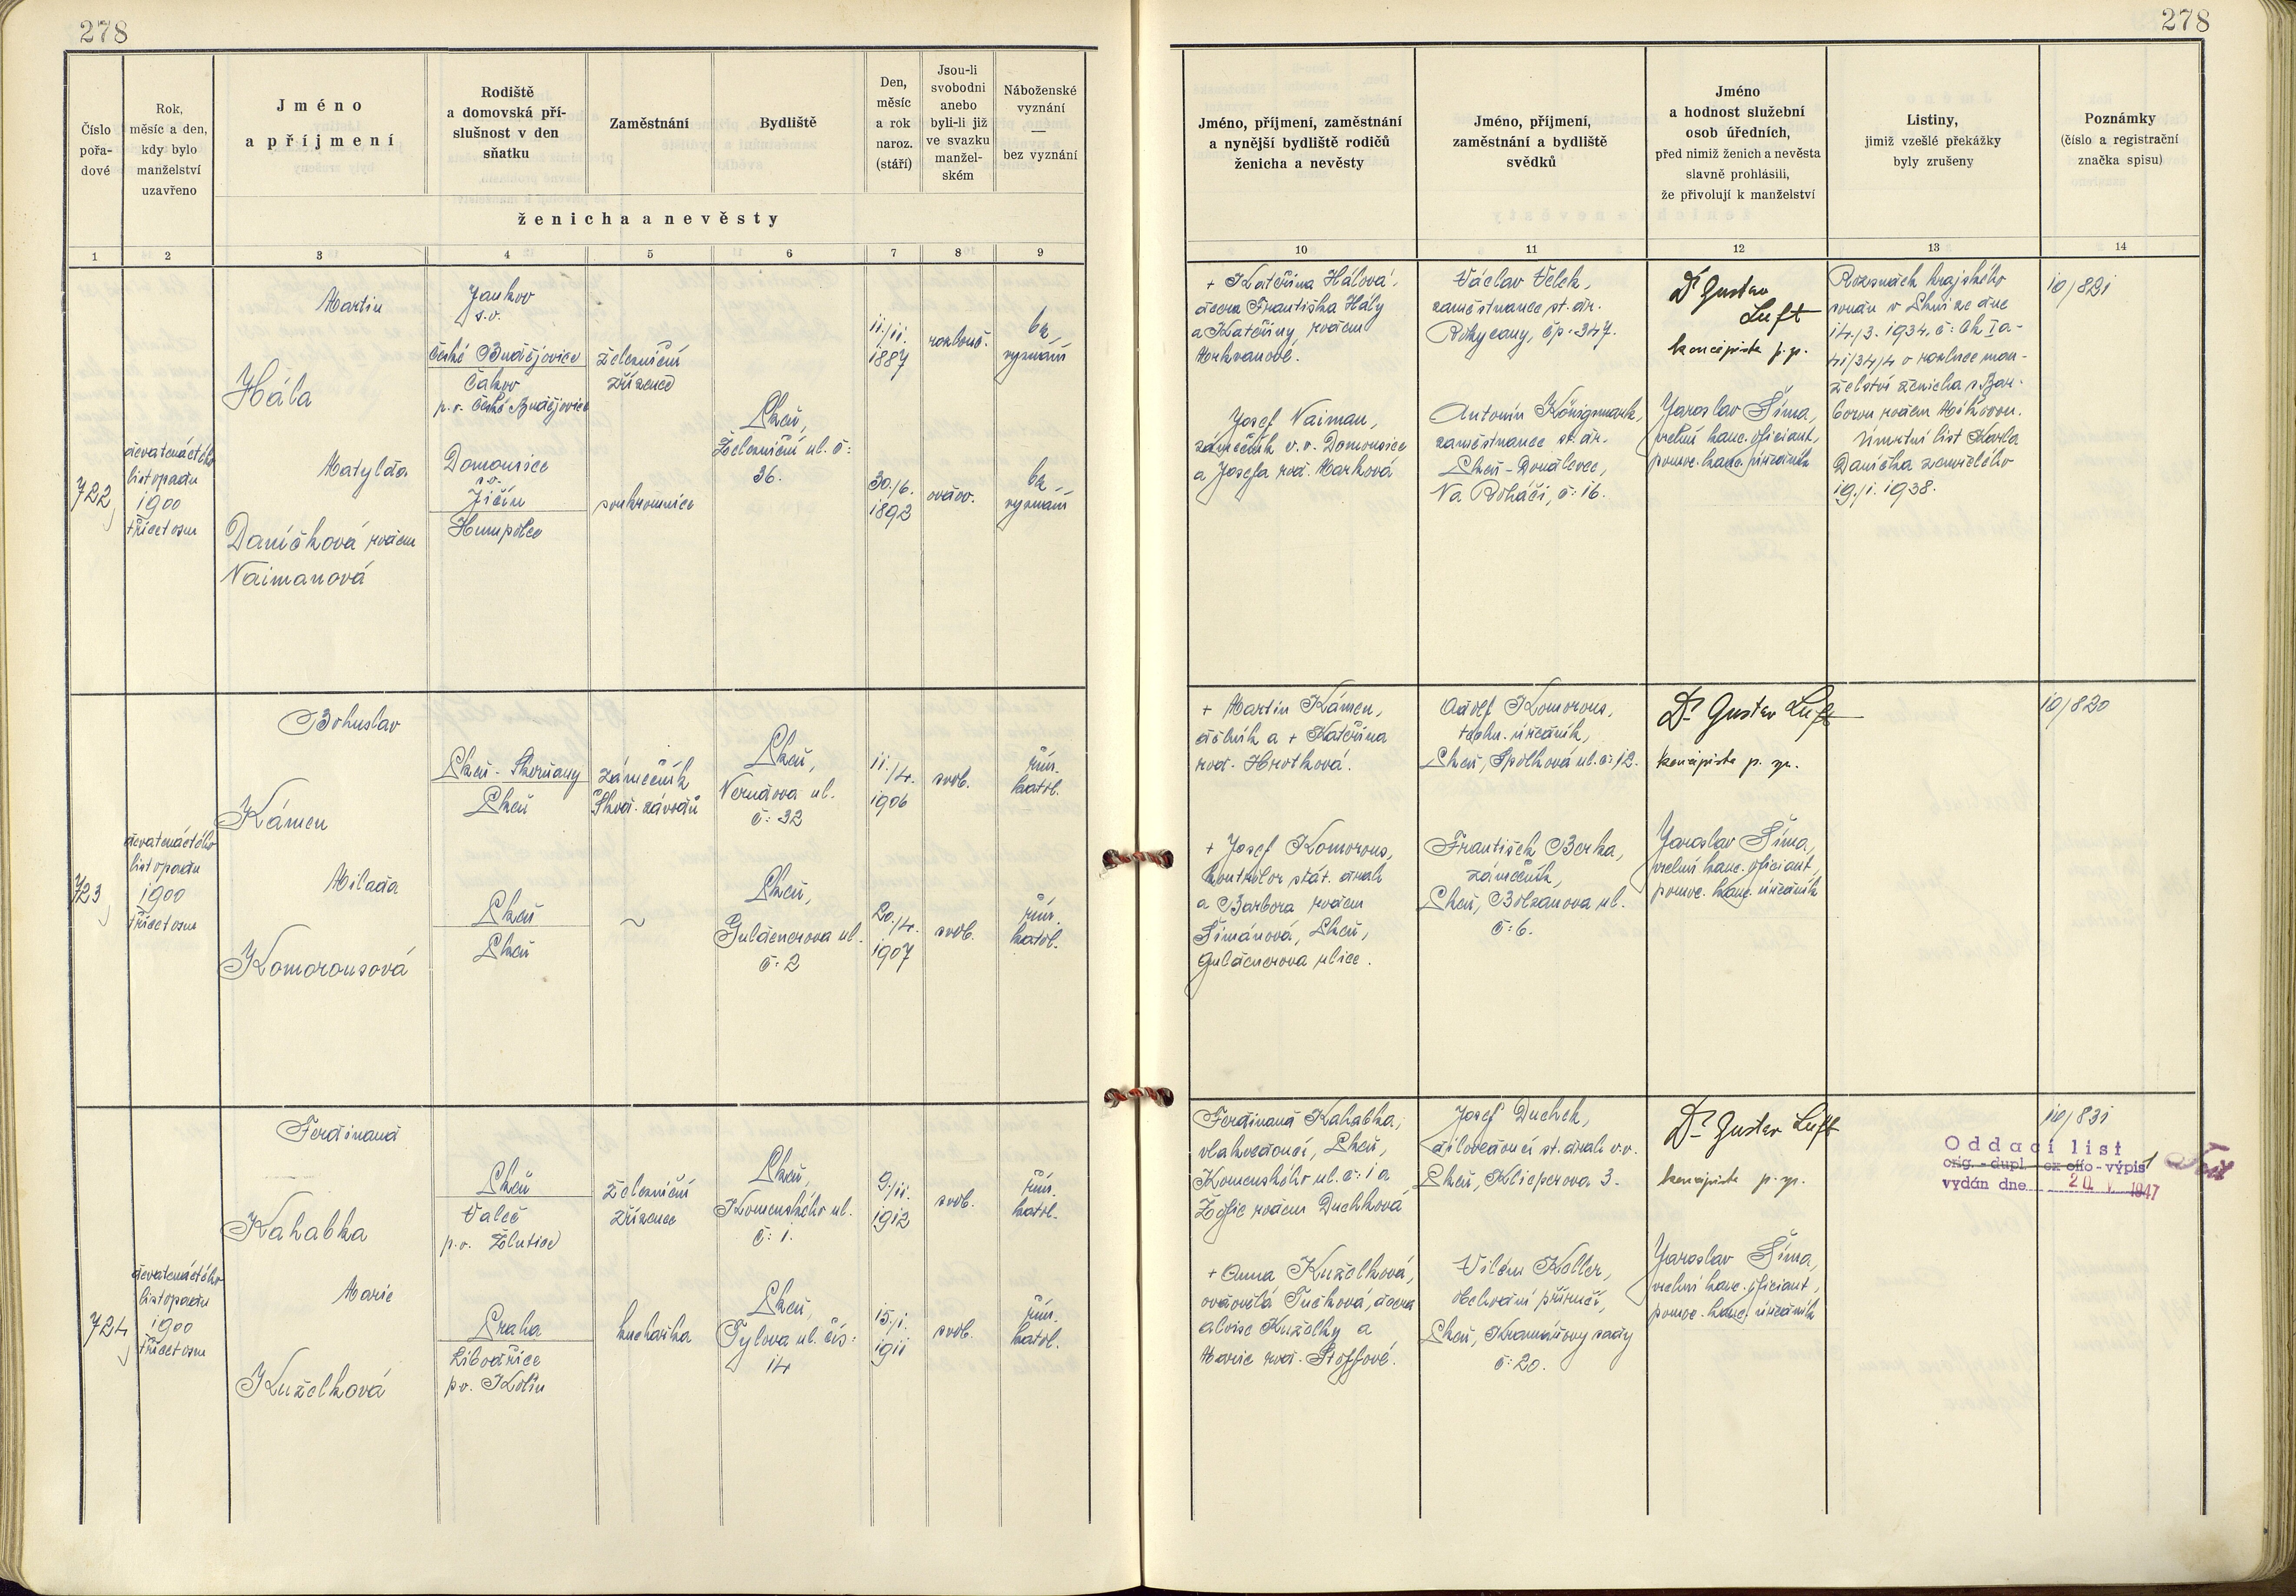 278
278
Číslo
pořa-
dové
Rok,
měsíc a den,
kdy bylo
manželství
uzavřeno
Jméno
a příjmení
Rodiště
a domovská pří-
slušnost v den
sňatku
Zaměstnání
Bydliště
Den,
měsíc
a rok
naroz.
(stáří)
Jsou-li
svobodni
anebo
byli-li již
ve svazku
manžel-
ském
Náboženské
vyznání
—
bez vyznání
ženicha a nevěsty
Jméno, příjmení, zaměstnání
a nynější bydliště rodičů
ženicha a nevěsty
Jméno, příjmení,
zaměstnání a bydliště
svědků
Jméno
a hodnost služební
osob úředních,
před nimiž ženich a nevěsta
slavně prohlásili,
že přivolují k manželství
Listiny,
jimiž vzešlé překážky
byly zrušeny
Poznámky
(číslo a registrační
značka spisu)
1 2 3 4 5 6 7 8 9
10 11 12 13 14
722
devatenáctého
listopadu
1900
třicetosm
Martin
Hála
Jankov
s.o.
České Budějovice
Čakov
p.o. České Budějovice
železniční
zřízenec
Plzeň,
Železniční ul. č:
36.
11./11.
1887
rozlouč.
bez
vyznání
Matylda
Daníčková rozem
Naimanová
Domousice
s.o.
Jičín
Humpolec
soukromnice
30./6.
1892
ovdov.
bez
vyznání
+ Kateřina Hálová,
dcera Františka Hály
a Kateřiny rozem
Josef Naiman,
zámečník v.v. Domousice
a Josefa roz. Marková
Václav Velek,
zaměstnanec st. dr.
Rokycany, čp. 347.
Antonín Königsmark,
zaměstnanec st. dr.
Plzeň-Doudlevce,
Na Roháči, č: 16.
Dr Gustav
Luft
koncipista p. zn.
Jaroslav Šíma,
vrchní kanc. oficiant,
pomoc. kanc. úředník
Rozsudek krajského
soudu v Plzni ze dne
14./3. 1934. č: Ck Ia-
41/34/4 o rozluce man-
želství ženicha s Bar-
borou rozem Míkovou.
Úmrtní list Karla
Daníčka zemřelého
19./1. 1938.
10/821
723
devatenáctého
listopadu
1900
třicetosm
Bohuslav
Kámen
Plzeň-Skvrňany
Plzeň
zámečník
Škod. závodů
Plzeň,
Nerudova ul.
č: 32
11./4.
1906
svob.
řím.
katol.
Milada
Komorousová
Plzeň
Plzeň
~
Plzeň,
Guldenerova ul.
č: 2
20./4.
1907
svob.
řím.
katol.
+ Martin Kámen,
dělník a + Kateřina
roz. Hrotková.
+ Josef Komorous,
kontrolor stát. drah
a Barbora rozem
Šimánová, Plzeň,
Guldenerova ulice.
Adolf Komorous,
techn. úředník,
Plzeň, Spolková ul. č: 12.
František Berka,
zámečník,
Plzeň, Bolzanova ul.
č: 6.
Dr Gustav Luft
koncipista p. zn.
Jaroslav Šíma,
vrchní kanc. oficiant,
pomoc. kanc. úředník
10/820
724
devatenáctého
listopadu
1900
třicetosm
Ferdinand
Kahabka
Plzeň
Valeč
p.o. Žlutice
železniční
zřízenec
Plzeň,
Komenského ul.
č: 1.
9./11.
1912
svob.
řím.
katol.
Marie
Kuželková
Praha
Libodřice
p.o. Kolín
kuchařka
Plzeň,
Tylova ul. čís:
14
15./1.
1911
svob.
řím.
katol.
Ferdinand Kahabka,
vlakvedoucí, Plzeň,
Komenského ul. č: 1 a
Žofie rozem Duchková
+ Anna Kuželková,
ovdovělá Tučková, dcera
Aloise Kuželky a
Marie roz. Stöffové.
Josef Duchek,
dílovedoucí st. drah v.v.
Plzeň, Klicperova 3.
Vilém Koller,
obchodní příručí,
Plzeň, Kramářovy sady
č: 20.
Dr Gustav Luft
koncipista p. zn.
Jaroslav Šíma,
vrchní kanc. oficiant,
pomoc. kanc. úředník
10/831
Oddací list
orig. - dupl. - ex offo - výpis
vydán dne 20. V. 1947